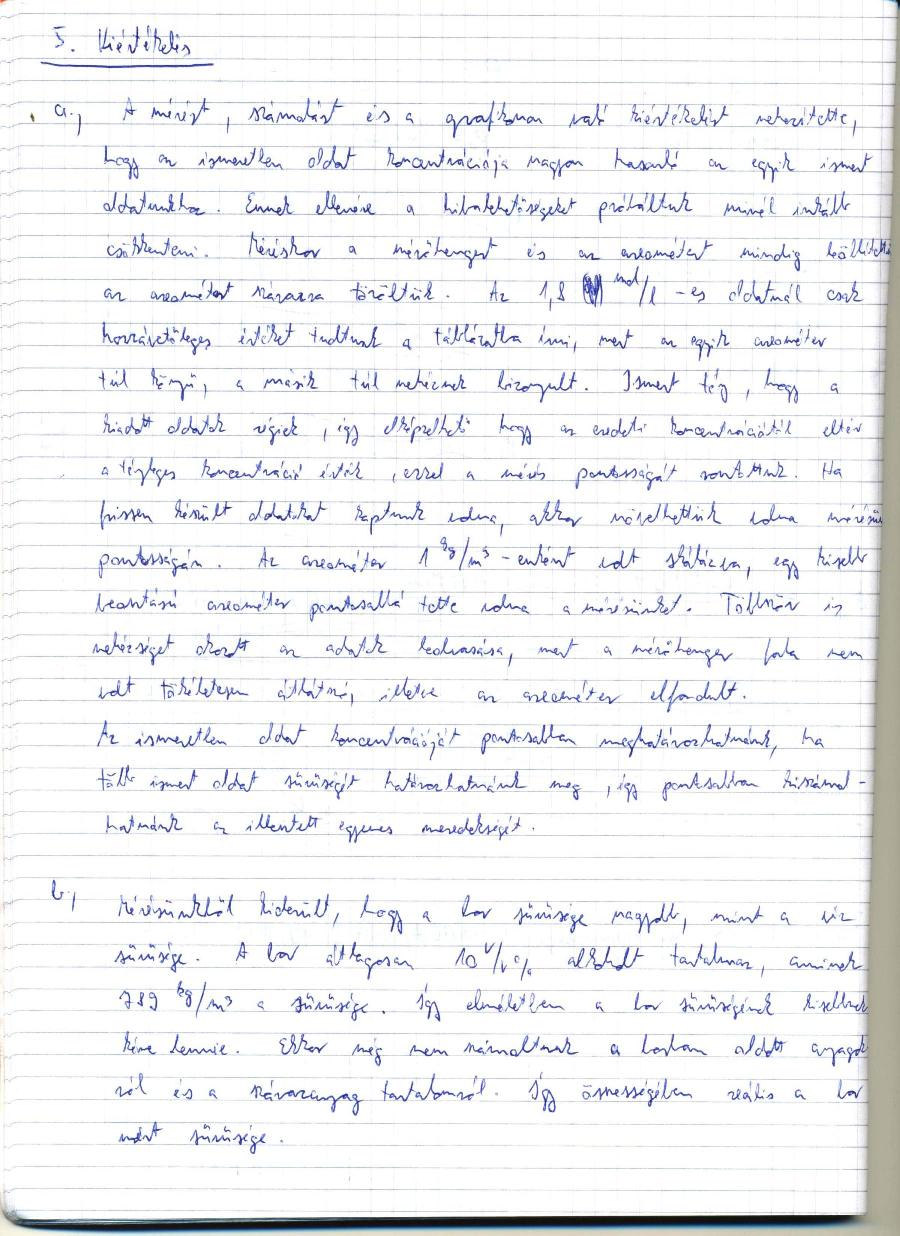 5. Kiértékelés
a., A mérést, számolást és a grafikonon való kiértékelést nehezítette,
hogy az ismeretlen oldat koncentrációja nagyon hasonló az egyik ismert
oldatunkhoz. Ennek ellenére a hibalehetőségeket próbáltuk minél inkább
csökkenteni. Méréskor a mérőhengert és az areométert mindig
az areométert szárazra töröltük. Az 1,8 mol/l -es oldatnál csak
hozzávetőleges értéket tudtunk a táblázatba írni, mert az egyik areométer
túl könnyű, a másik túl nehéznek bizonyult. Ismert tény, hogy a
kiadott oldatok régiek, így elképzelhető hogy az eredeti koncentrációtól eltér
a tényleges koncentráció érték, ezzel a mérés pontosságát rontottuk. Ha
frissen készült oldatokat kaptunk volna, akkor növelhettük volna mérésünk
pontosságán. Az areométer 1 kg/m³ -enként volt skálázva, egy kisebb
beosztású areométer pontosabbá tette volna a mérésünket. Többször is
nehézséget okozott az adatok leolvasása, mert a mérőhenger fala nem
volt tökéletesen átlátszó, illetve az areométer elfordult.
Az ismeretlen oldat koncentrációját pontosabban meghatározhatnánk, ha
több ismert oldat sűrűségét határozhatnánk meg, így pontosabban kiszámol-
hatnánk az illesztett egyenes meredekségét.
b., Mérésünkből kiderült, hogy a bor sűrűsége nagyobb, mint a víz
sűrűsége. A bor átlagosan 10 V/V% alkoholt tartalmaz, aminek
789 kg/m³ a sűrűsége. Így elméletben a bor sűrűségének kisebbnek
kéne lennie. Ekkor még nem számoltunk a borban oldott anyagok
ról és a szárazanyag tartalomról. Így összességében reális a bor
mért sűrűsége.